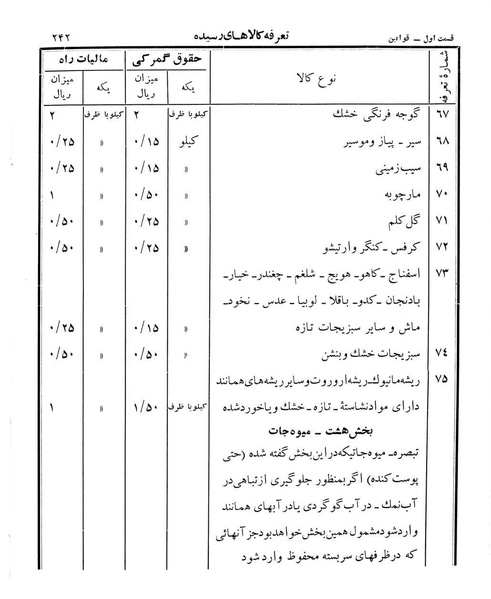 قسمت اول ــ قوانین تعرفه کالاهای رسیده ۲۴۲
شمارهٔ تعرفه نوع کالا حقوق گمرکی مالیات راه
یکه میزان ریال یکه میزان ریال
۶۷ گوجه فرنگی خشك کیلو با ظرف ۲ کیلو با ظرف ۲
۶۸ سیر ــ پیاز و موسیر کیلو ۰/۱۵ » ۰/۲۵
۶۹ سیب زمینی » ۰/۱۵ » ۰/۲۵
۷۰ مارچوبه » ۰/۵۰ » ۱
۷۱ گل کلم » ۰/۲۵ » ۰/۵۰
۷۲ کرفس ــ کنگر و ارتیشو » ۰/۲۵ » ۰/۵۰
۷۳ اسفناج ــ کاهو ــ هویج ــ شلغم ــ چغندر ــ خیار ــ
بادنجان ــ کدو ــ باقلا ــ لوبیا ــ عدس ــ نخود ــ
ماش و سایر سبزیجات تازه » ۰/۱۵ » ۰/۲۵
۷۴ سبزیجات خشك و بنشن » ۰/۵۰ » ۰/۵۰
۷۵ ریشه مانیوك ــ ریشه اروروت و سایر ریشه های همانند
دارای مواد نشاستهٔ ــ تازه ــ خشك و یا خورد شده کیلو با ظرف ۱/۵۰ » ۱
بخش هشت ــ میوه جات
تبصره ــ میوه جاتیکه در این بخش گفته شده (حتی
پوست کنده) اگر بمنظور جلوگیری از تباهی در
آب نمك ــ در آب گوگردی یا در آبهای همانند
وارد شود مشمول همین بخش خواهد بود جز آنهائی
که در ظرفهای سربسته محفوظ وارد شود